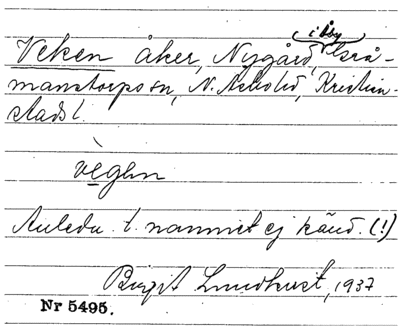 Veken åker, Nygård, i Åby Grå-
manstorps sn, N. Åsbo hd, Kristian-
stads l.
vègən
Anledn. t. namnet ej känd. (!)
Birgit Lundkvist, 1937
Nr 5495.